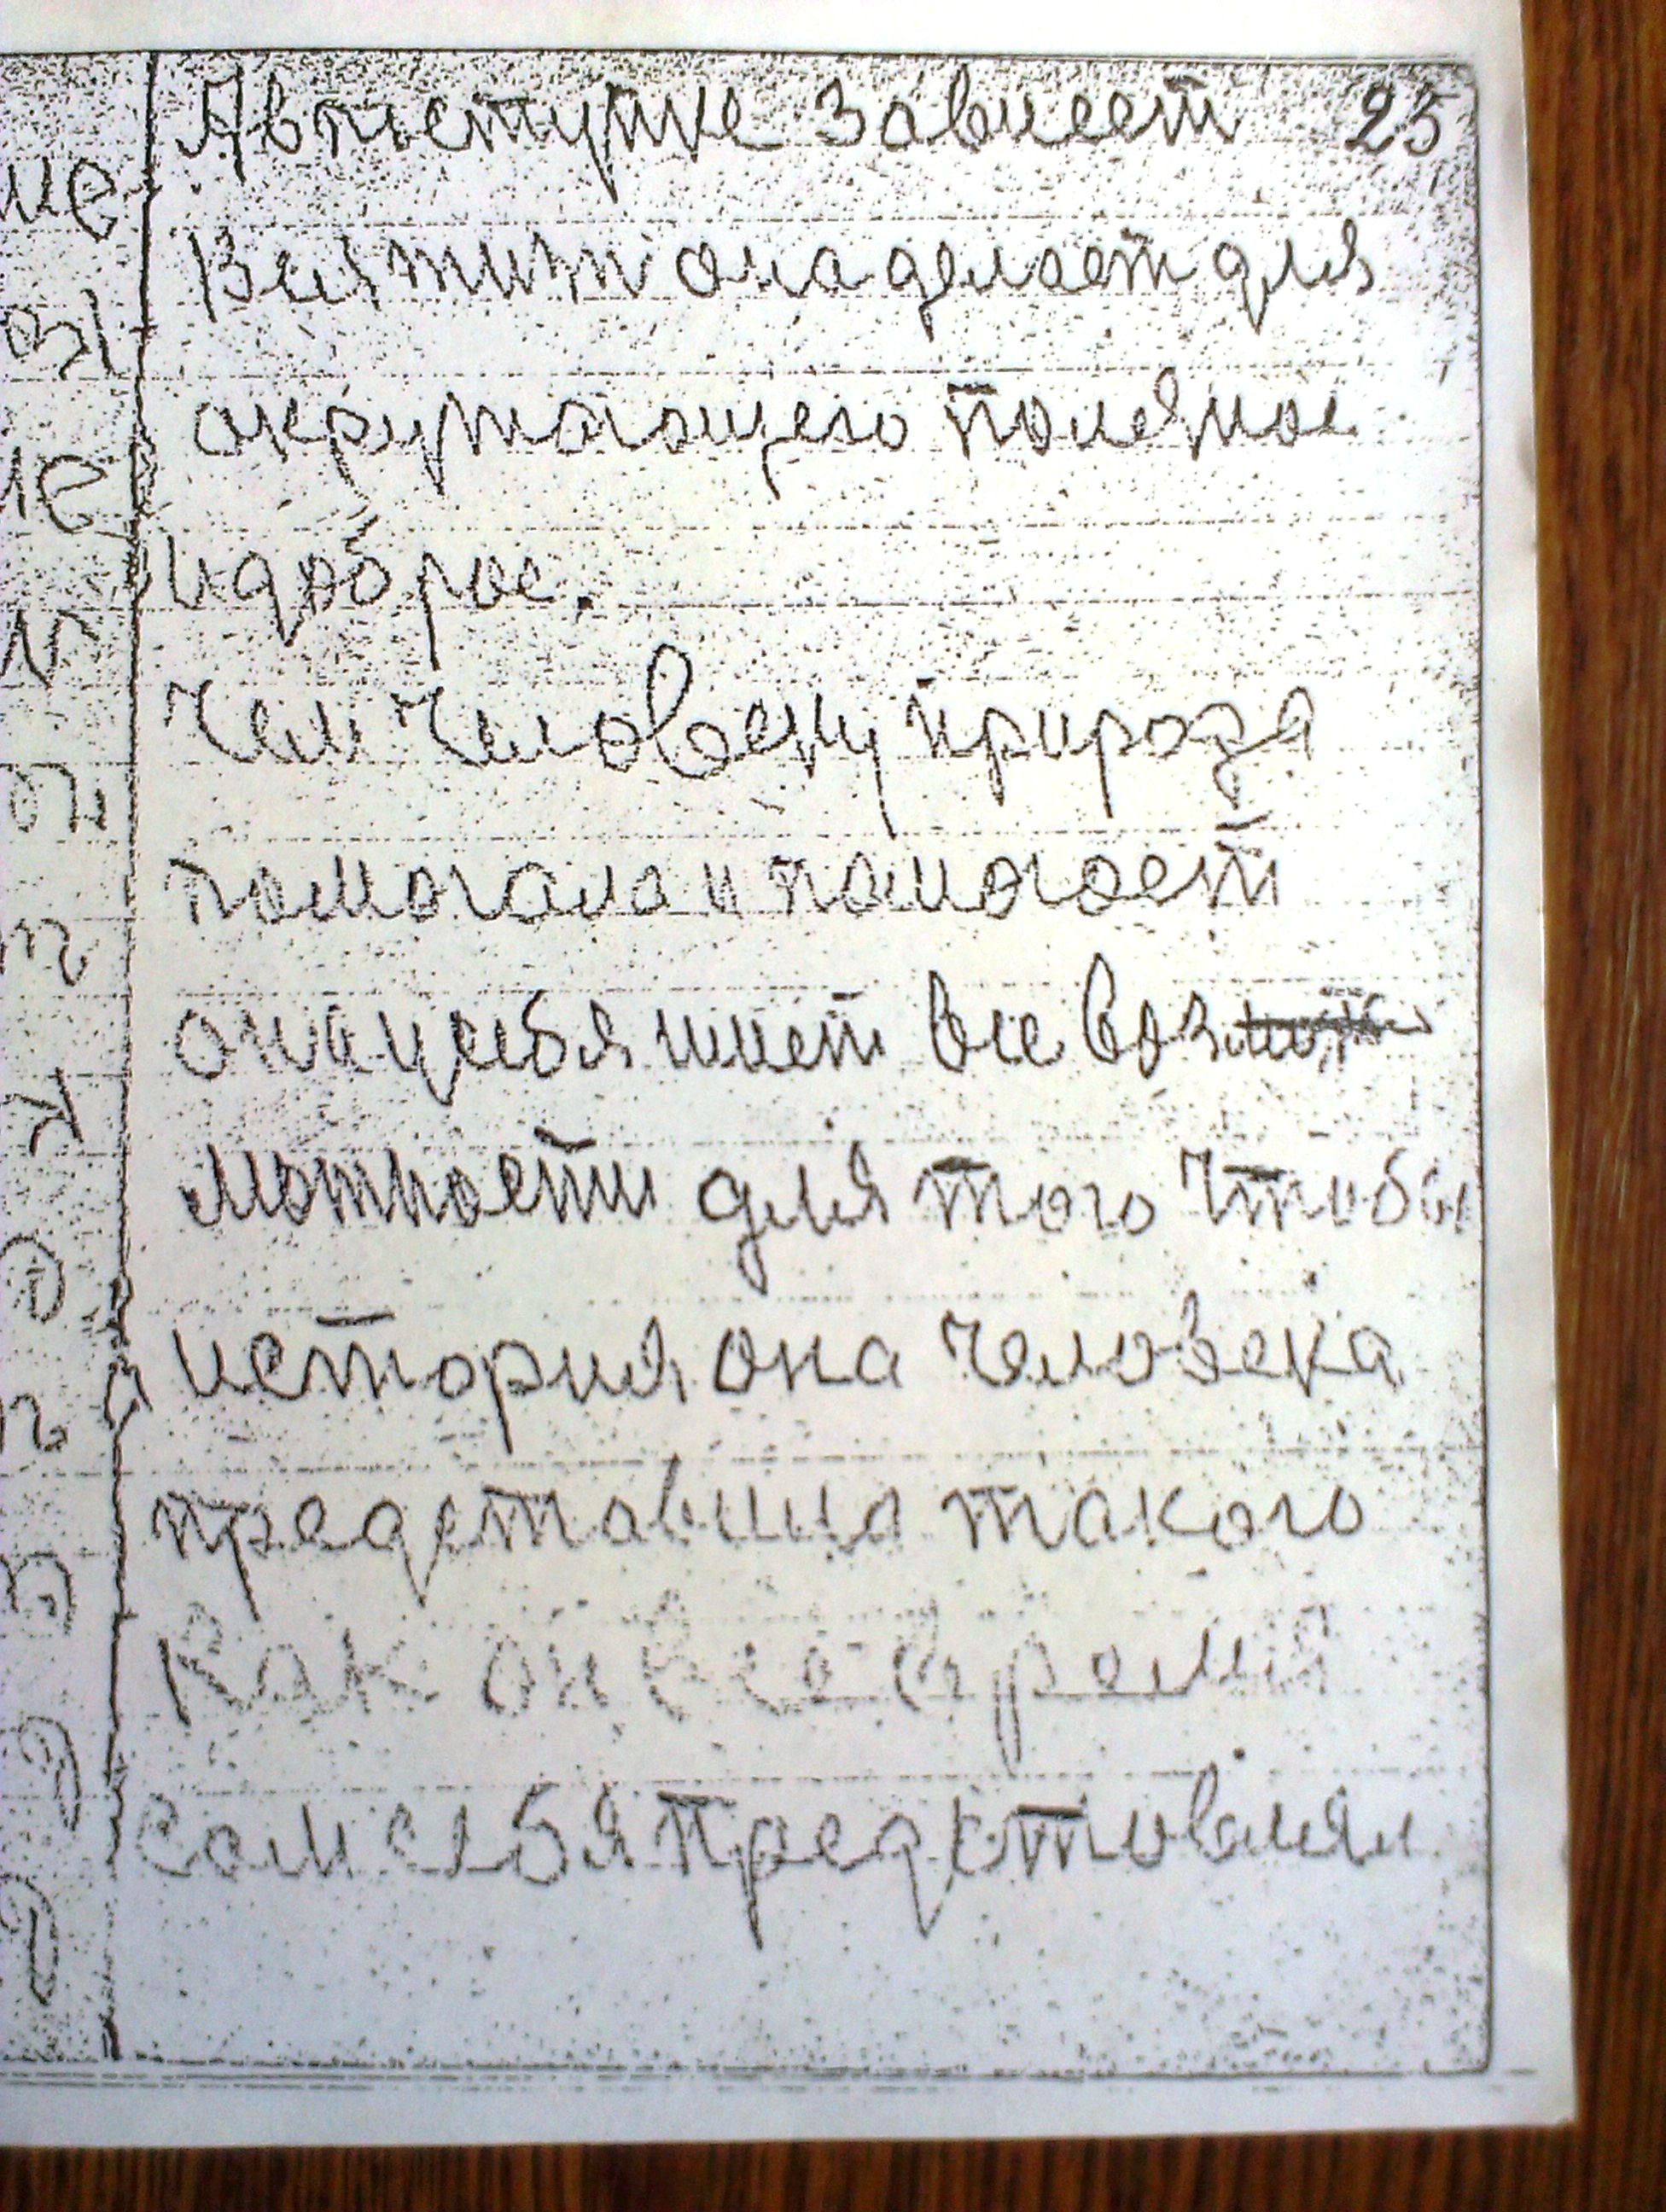 А в поступке зависеет 25
Вся жизнь она делает для
окружающего полезное
и доброе.
Чем человеку природа
помогала и помогает
она у себя имет все воз
можности для того чтобы
история она человека
представила такого
Как он все время
сам себя представлял